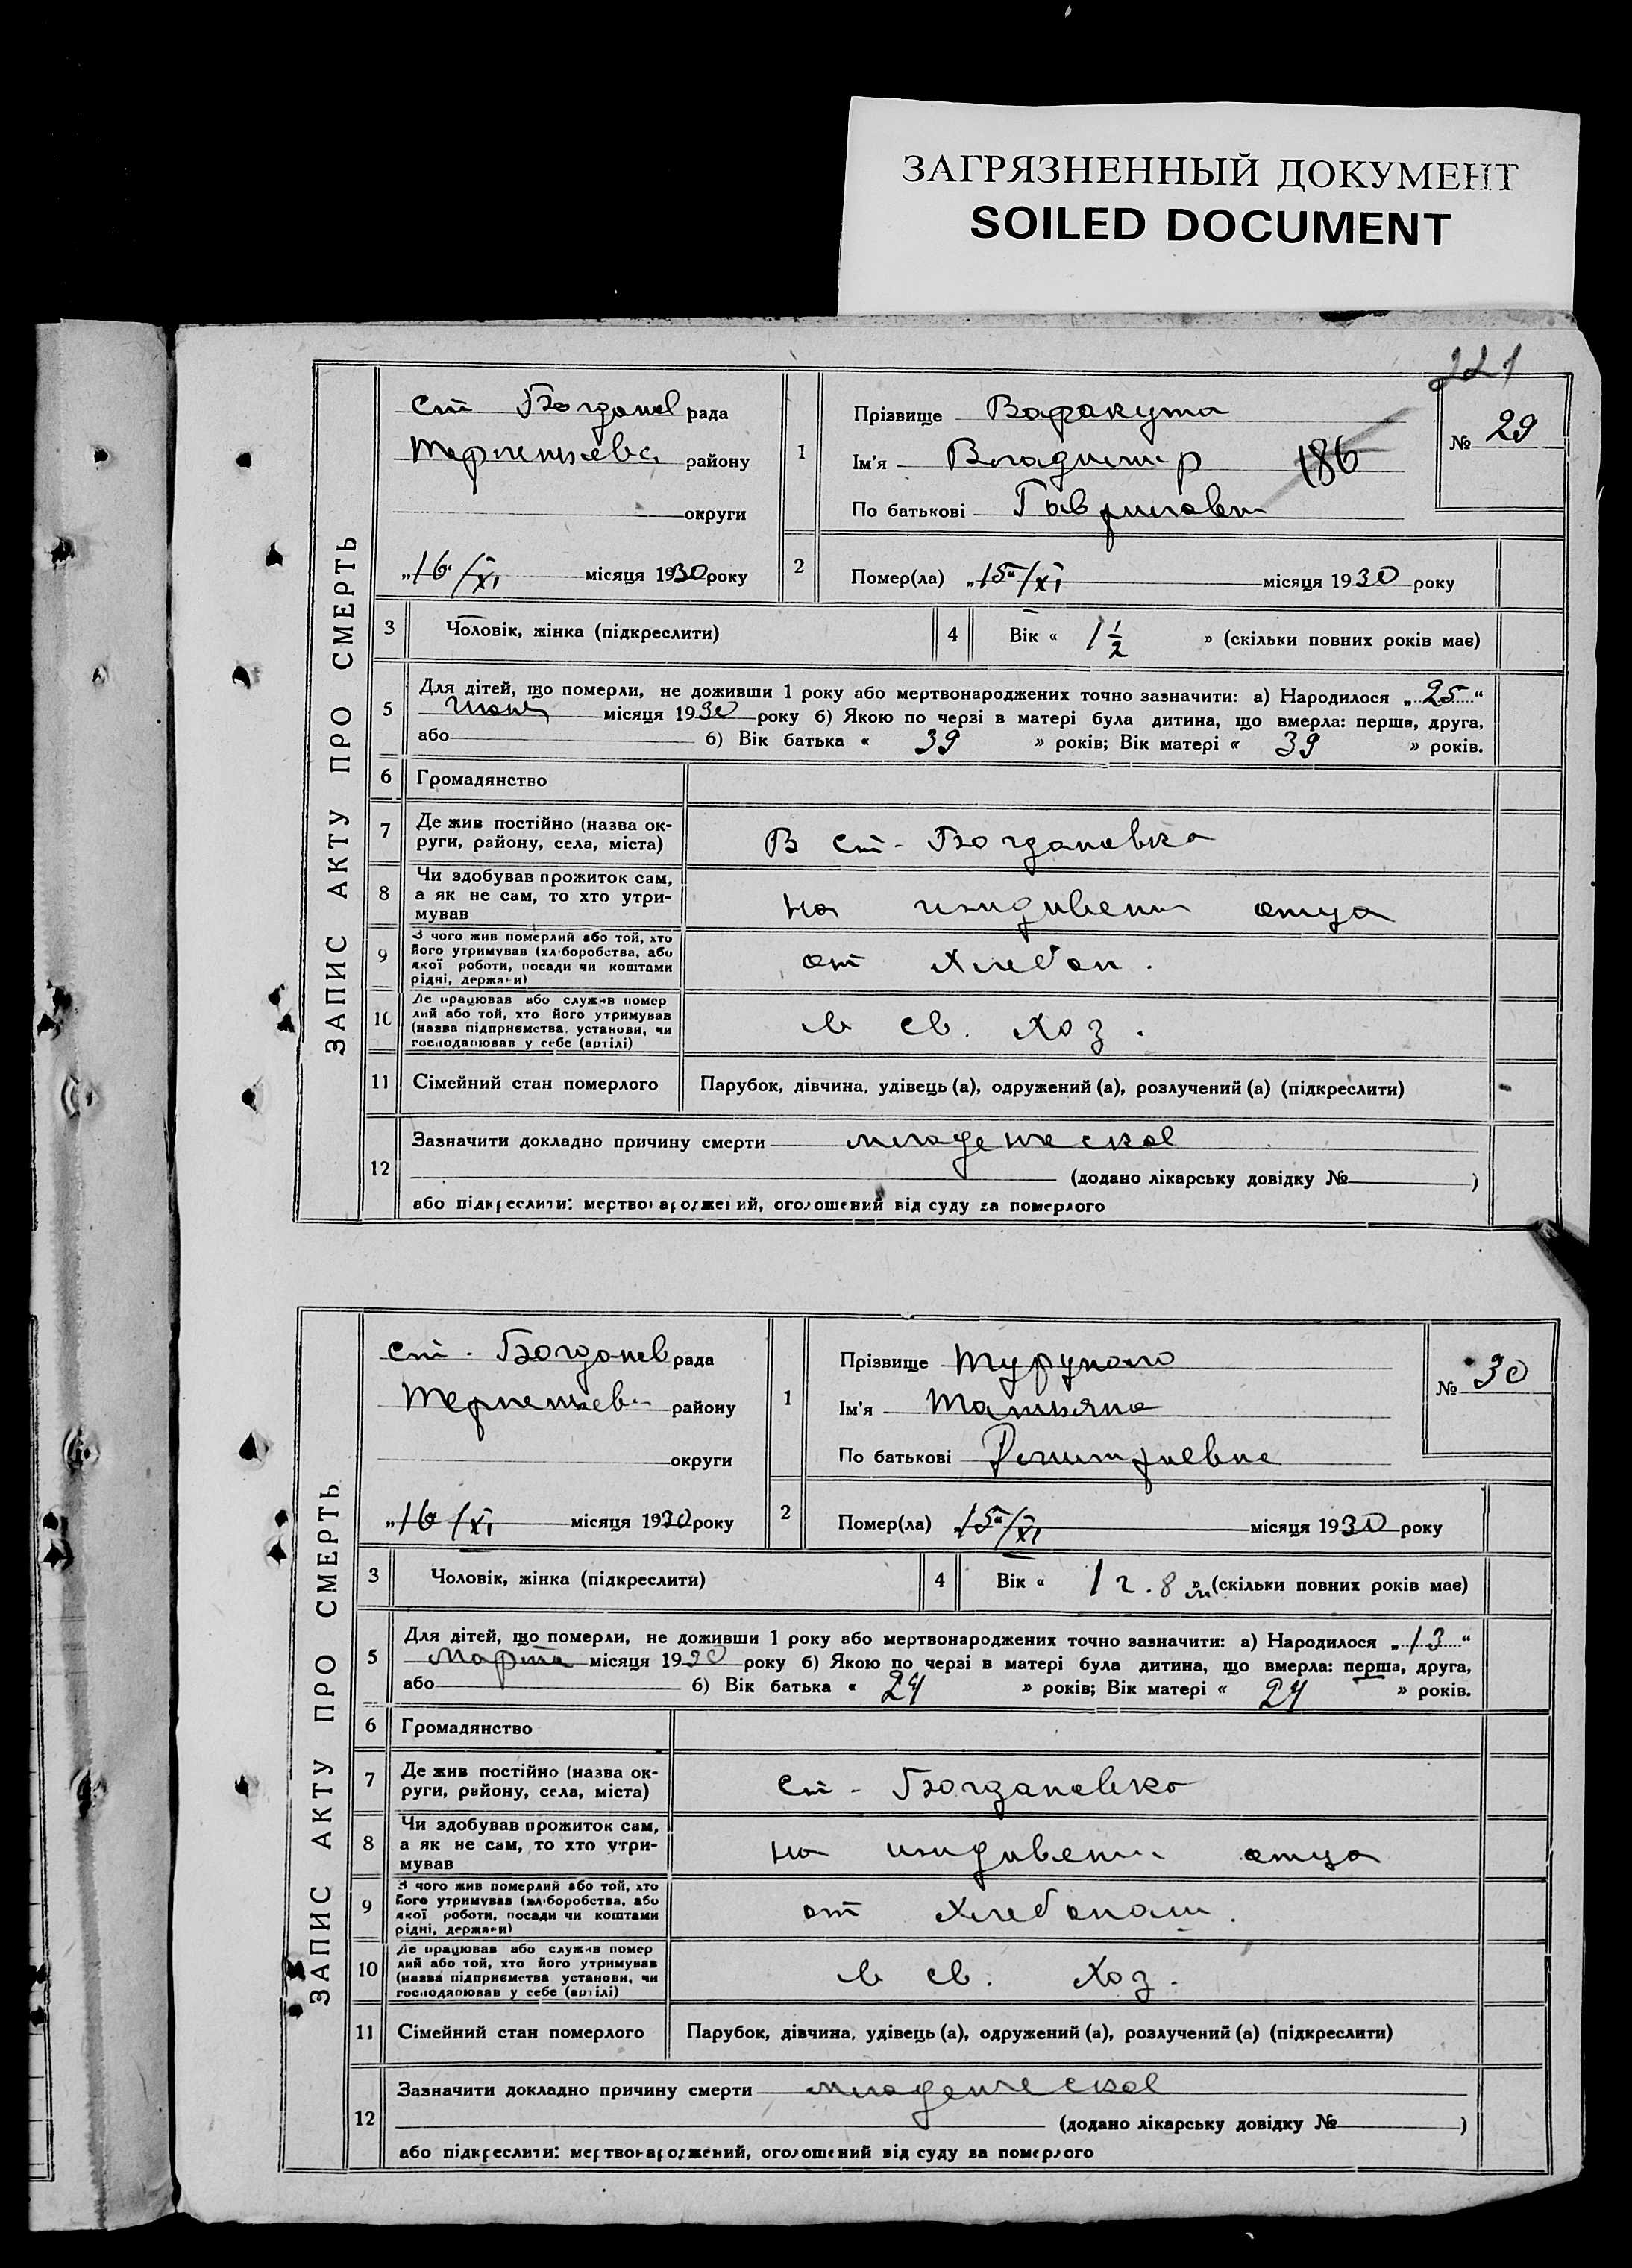 ЗАГРЯЗНЕННЫЙ ДОКУМЕНТ
SOILED DOCUMENT
221
ЗАПИС АКТУ ПРО СМЕРТЬ
ст Богданов рада
району
округи
„16“/XI місяця 1930 року
1
Прізвище Варакута
Ім'я Владимир
186
По батькові Гаврилович
№ 29
2
Помер(ла) „15“/XI місяця 1930 року
3
Чоловік, жінка (підкреслити)
4
Вік « 1 1/2 » (скільки повних років має)
5
Для дітей, що померли, не доживши 1 року або мертвонароджених точно зазначити: а) Народилося „25“
місяця 1930 року б) Якою по черзі в матері була дитина, що вмерла: перша, друга,
або б) Вік батька « 39 » років; Вік матері « 39 » років.
6
Громадянство
7
Де жив постійно (назва ок-
руги, району, села, міста)
В ст-Богдановка
8
Чи здобував прожиток сам,
а як не сам, то хто утри-
мував
на отца
9
З чого жив померлий або той, хто
його утримував (хліборобства, або
якої роботи, посади чи коштами
рідні, держави)
от хлебоп.
10
Де працював або служив помер
лий або той, хто його утримував
(назва підприємства, установи, чи
господарював у себе (артілі)
в св. хоз.
11
Сімейний стан померлого
Парубок, дівчина, удівець (а), одружений (а), розлучений (а) (підкреслити)
12
Зазначити докладно причину смерти младеческая
(додано лікарську довідку № )
або підкреслити: мертвонароджений, оголошений від суду за померлого
ЗАПИС АКТУ ПРО СМЕРТЬ
ст-Богданов рада
району
округи
„16/XI місяця 1930 року
1
Прізвище
Ім'я Татьяна
По батькові Дмитриевна
№ 30
2
Помер(ла) „15“/XI місяця 1930 року
3
Чоловік, жінка (підкреслити)
4
Вік « 1 г. 8 м » (скільки повних років має)
5
Для дітей, що померли, не доживши 1 року або мертвонароджених точно зазначити: а) Народилося „13“
Марта місяця 1930 року б) Якою по черзі в матері була дитина, що вмерла: перша, друга,
або б) Вік батька « 24 » років; Вік матері « 24 » років.
6
Громадянство
7
Де жив постійно (назва ок-
руги, району, села, міста)
ст-Богдановка
8
Чи здобував прожиток сам,
а як не сам, то хто утри-
мував
на отца
9
З чого жив померлий або той, хто
його утримував (хліборобства, або
якої роботи, посади чи коштами
рідні, держави)
от хлебопаш.
10
Де працював або служив помер
лий або той, хто його утримував
(назва підприємства установи, чи
господарював у себе (артілі)
в св. хоз.
11
Сімейний стан померлого
Парубок, дівчина, удівець (а), одружений (а), розлучений (а) (підкреслити)
12
Зазначити докладно причину смерти младеческая
(додано лікарську довідку № )
або підкреслити: мертвонароджений, оголошений від суду за померлого